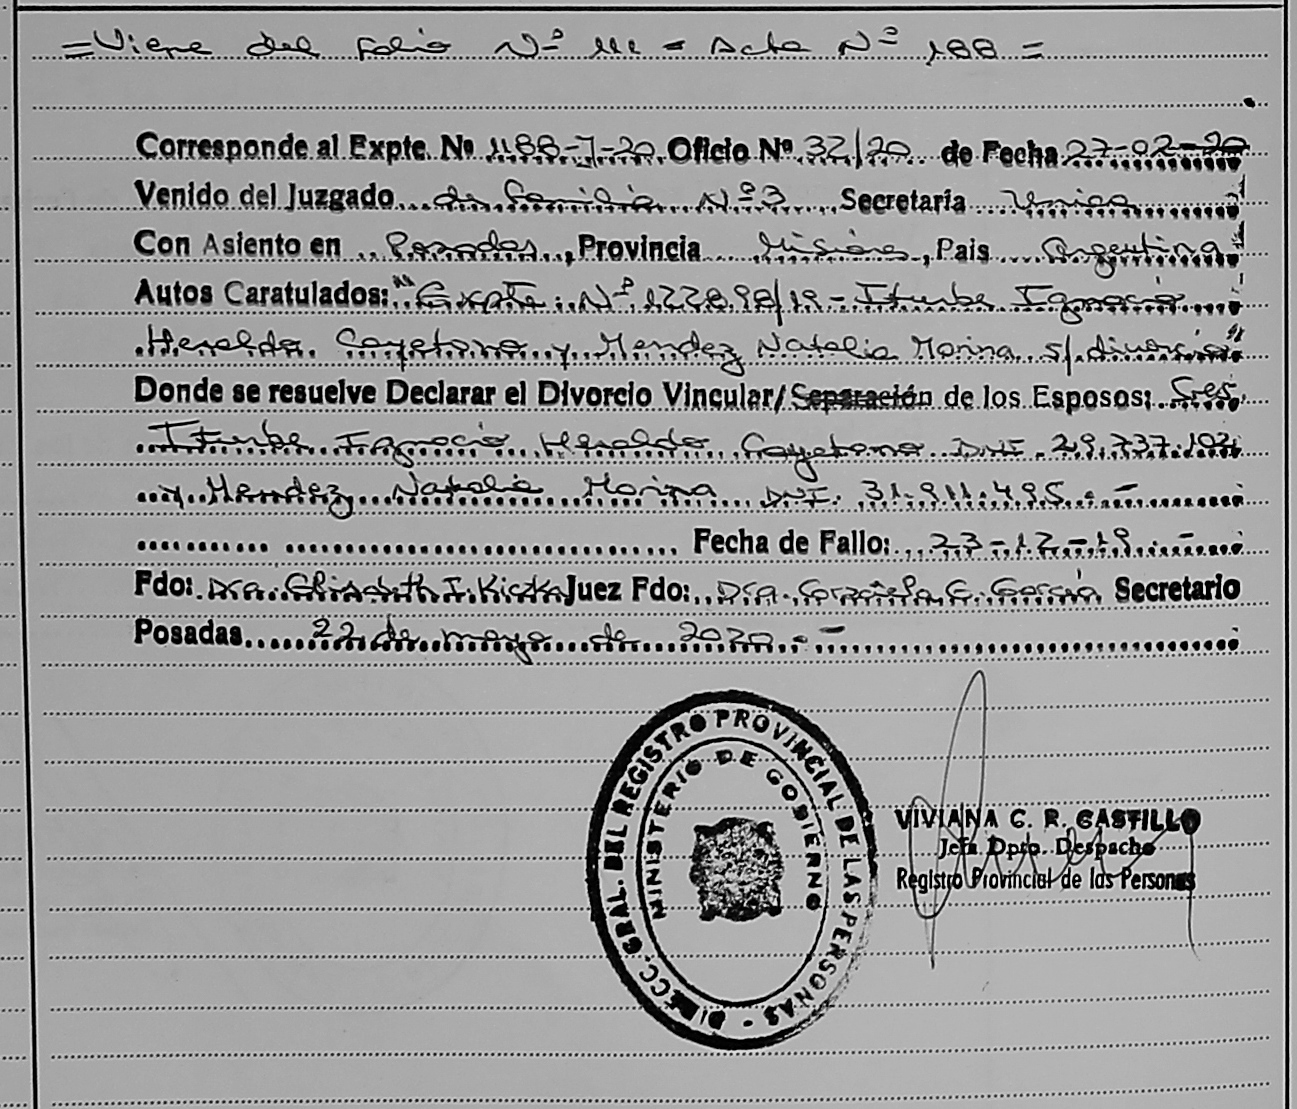 =Viene del folio Nº 111 = Acta Nº 188 =
Corresponde al Expte. Nº 1188-I-20 Oficio Nº 32/20 de Fecha 27-02-20
Venido del Juzgado de Familia Nº 3 Secretaria Unica
Con Asiento en Posadas, Provincia Misiones, Pais Argentina
Autos Caratulados: "Expte. Nº 122898/19 - Iturbe Ignacio
Heraldo Cayetano y Mendez Natalia Marina s/divorcio"
Donde se resuelve Declarar el Divorcio Vincular/Separación de los Esposos: Sres.
Iturbe Ignacio Heraldo Cayetano DNI. 29.737.102
y Mendez Natalia Marina DNI. 31.911.495.-
Fecha de Fallo: 23-12-19.-
Fdo: Dra. Elisabeth I. Kiczka Juez Fdo: Dra. Graciela G. García Secretario
Posadas 22 de mayo de 2020.-
DIRECC. GRAL. DEL REGISTRO PROVINCIAL DE LAS PERSONAS -
MINISTERIO DE GOBIERNO
VIVIANA C. R. CASTILLO
Jefa Dpto. Despacho
Registro Provincial de las Personas